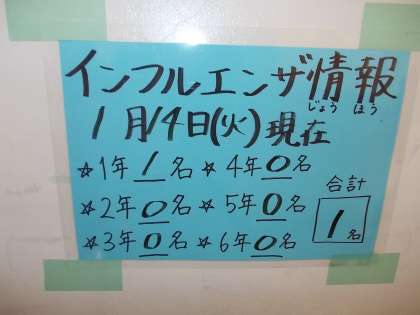 インフルエンザ情報
じょう ほう
1月14日(火)現在
☆1年 1名 ☆4年 0名
☆2年 0名 ☆5年 0名
☆3年 0名 ☆6年 0名
合計
1名